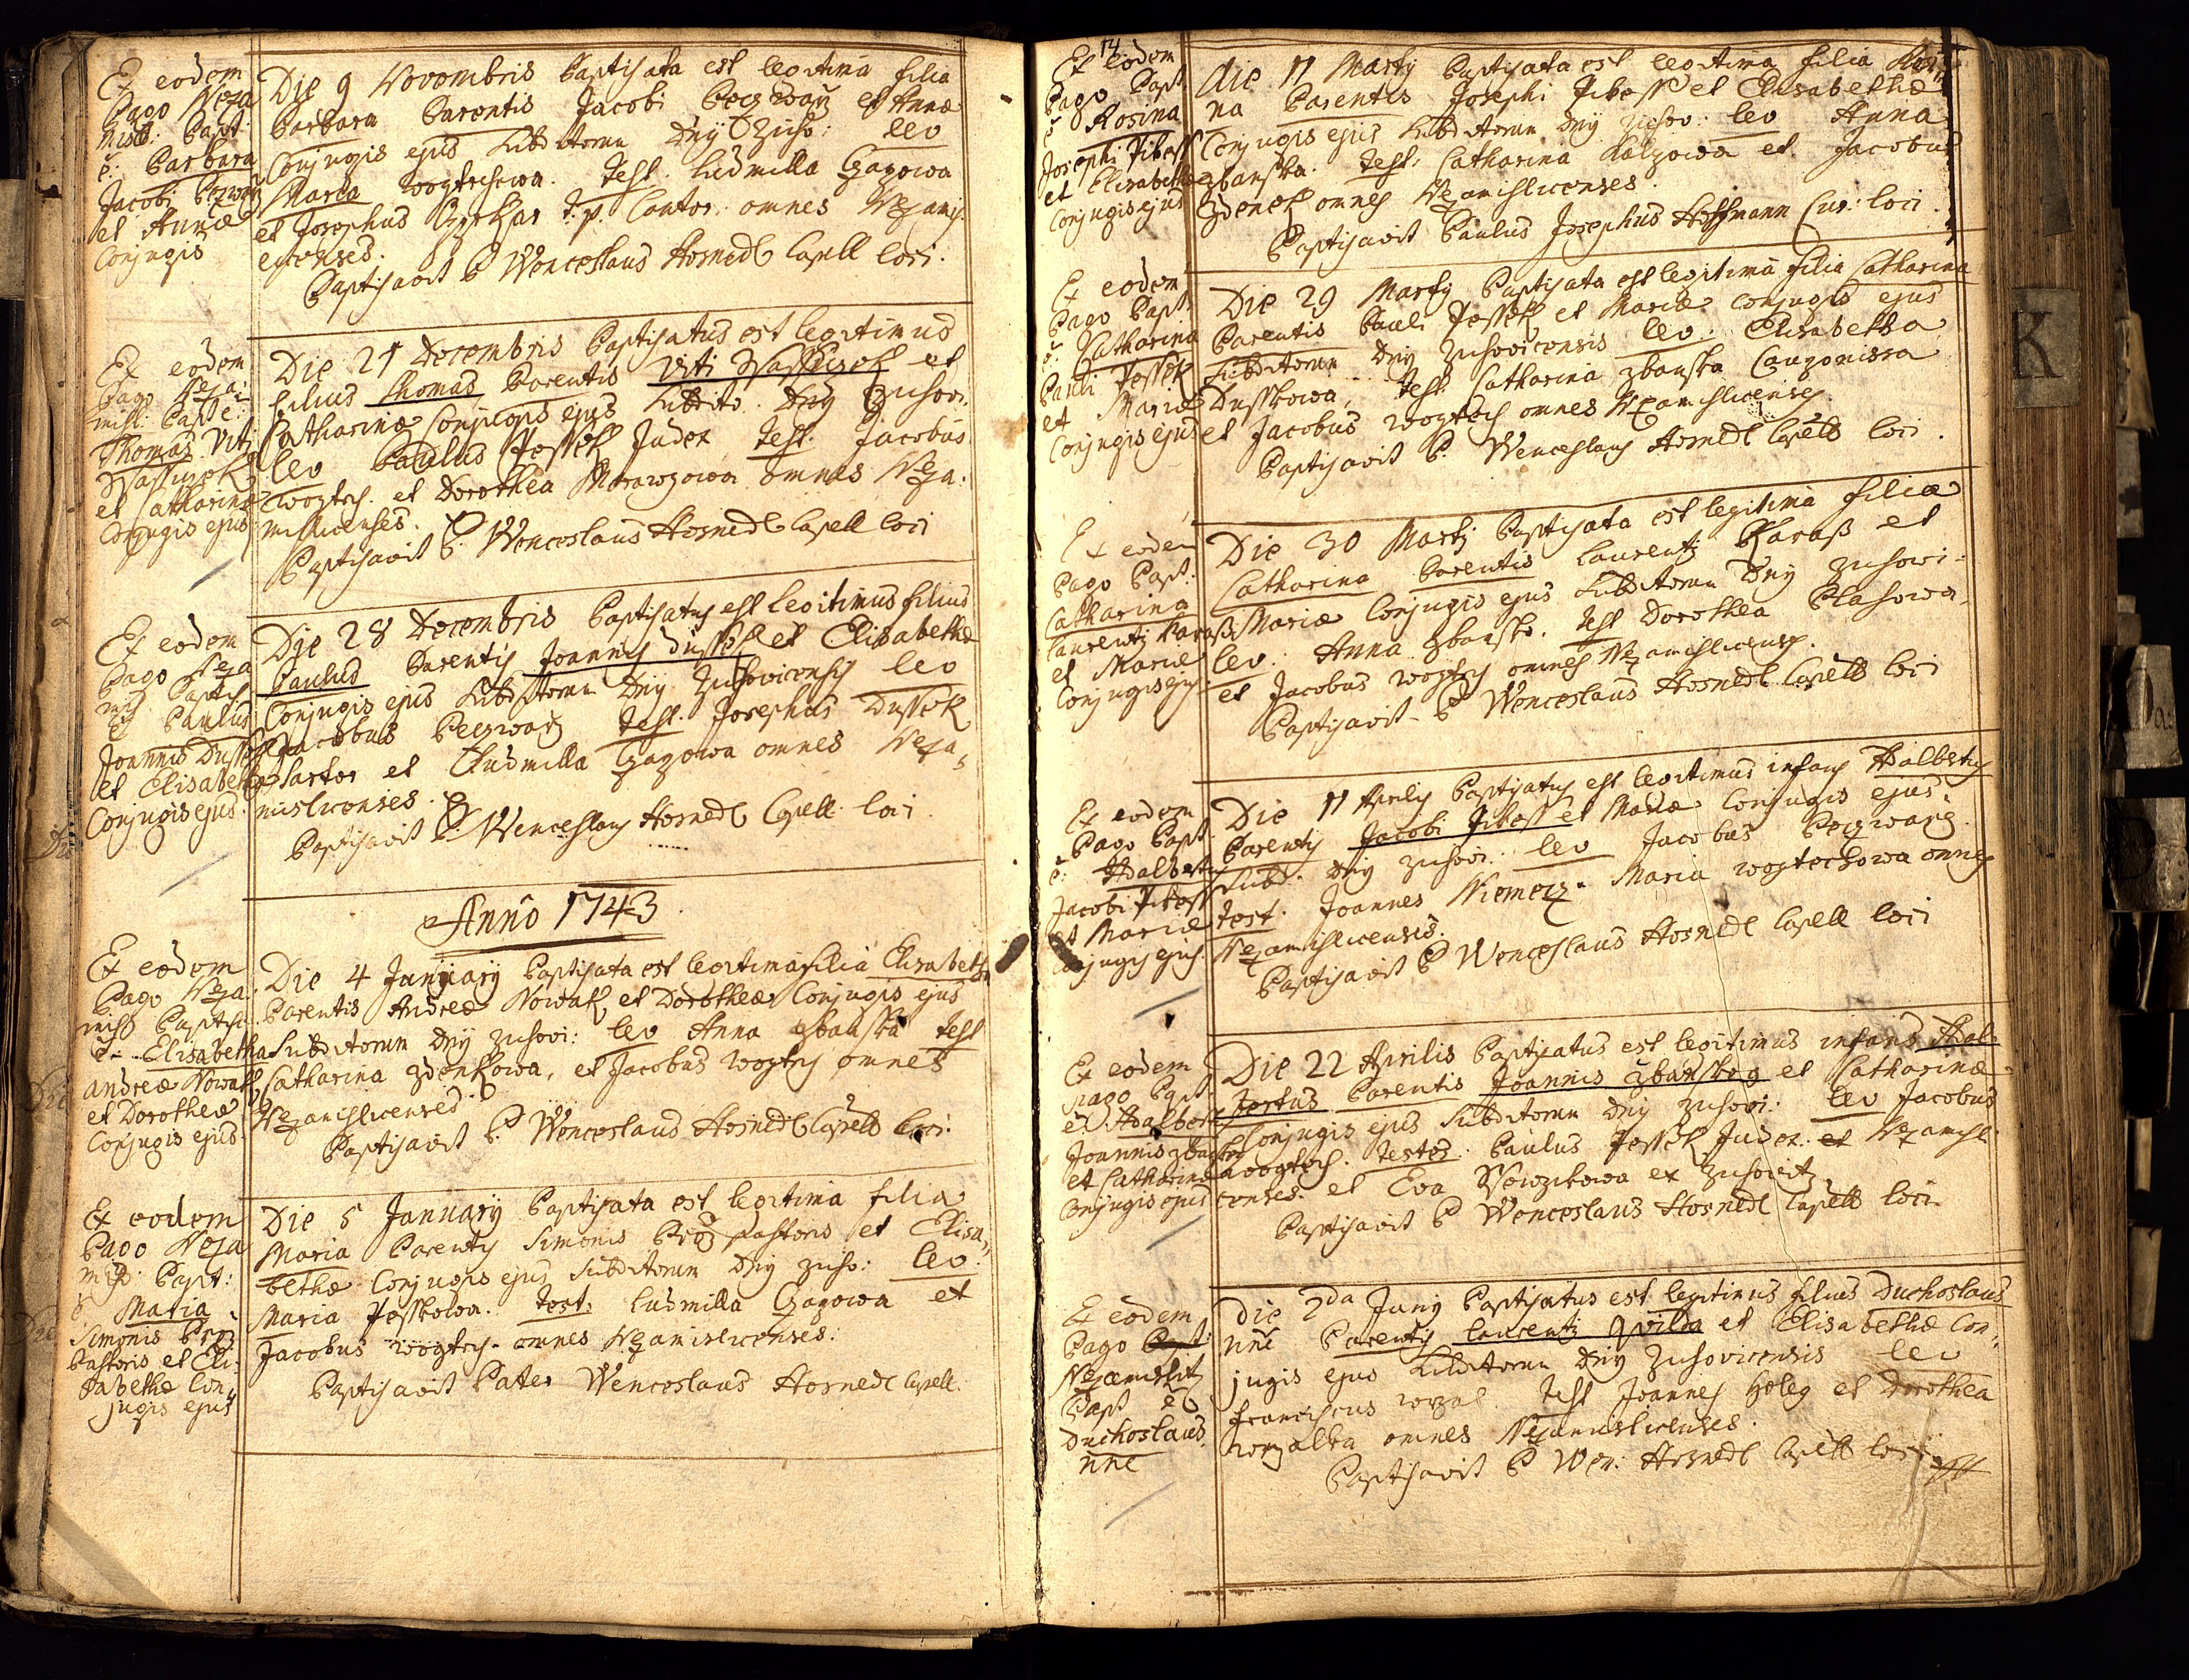 Ex eodem
Pago Neza
misl: Bapt:
e: Barbara
Jacobi
et Annæ
Conjugis
Die 9 Novembris Baptisata est legitima filia
Barbara Parentis Jacobi et Annæ
Conjugis ejus Subditorum Dnÿ Zuho: lev
Maria wogtechowa. Test. Ludmilla Gazowa
et Josephus t.p. Cantor. omnes Nezamis
licenses.
Baptisavit P Wenceslaus Hosnedl Capell loci.
Ex eodem
Pago Neza-
misl: Bapt e:
Thomas Viti
et Catharinæ
Conjugis ejus
Die 21 Decembris Baptisatus est legitimus
filius Thomas Parentis Viti et
Catharinæ Conjugis ejus Subdito. Dnÿ Zuhovi.
lev Paulus Jessek Judex Test. Jacobus
wogtech et Dorothea omnes Neza:
mislicenses.
Baptisavit P: Wenceslaus Hosnedl Capell loci
Ex eodem
Pago Neza
mis Baptis
e Paulus
Joannis Dussek
et Elisabethæ
Conjugis ejus.
Die 28 Decembris Baptisatus est legitimus filius
Paulus Parentis Joannis Dussek et Elisabethæ
Conjugis ejus Subditorum Dnÿ Zuhovicensis lev
Jacobus Test. Josephus Dussek
Sartor et Ludmilla Gazowa omnes Neza-
mislicenses.
Baptisavit P. Wenceslaus Hosnedl Capell. loci.
Anno 1743.
Ex eodem
Pago Neza
misl Baptis
e- Elisabetha
Andreæ Nowak
et Dorotheæ
Conjugis ejus.
Die 4 Januarÿ Baptisata est legitima filia Elisabetha
Parentis Andreæ Nowak et Dorotheæ Conjugis ejus
Subditorum Dnÿ Zuhovi: lev Anna zbanska Test
Catharina zdenkowa, et Jacobus wogtech omnes
Nezamislicenses.
Baptisavit P. Wenceslaus Hosnedl Capell loci.
Ex eodem
Pago Neza
misl: Bapt:
e Maria
Simonis
Pastoris et Eli-
sabethæ Con-
jugis ejus
Die 5 Januarÿ Baptisata est legitima filia
Maria Parentis Simonis Pastoris et Elisa-
bethæ Conjugis ejus Subditorum Dnÿ Zuho: lev.
Maria Jesskowa. Test: Ludmilla Gazowa et
Jacobus wogtech. omnes Nezamislicenses:
Baptisavit Pater Wenceslaus Hosnedl Capell.
14
Ex eodem
Pago Bapt
e Rosina
Josephi Jibass
et Elisabethæ
Conjugis ejus
Die 11 Martÿ Baptisata est legitima filia Rosi-
na Parentis Josephi Jibass et Elisabethæ
Conjugis ejus Subditorum Dnÿ Zuhov: lev Anna
zbanska. Test: Catharina et Jacobus
zdenek omnes Nezamislicenses.
Baptisavit Paulus Josephus Hoffmann Cur: loci.
Ex eodem
Pago Bapt
e: Catharina
Pauli Jessek
et Mariæ
Conjugis ejus
Die 29 Martÿ Baptisata est legitima filia Catharina
Parentis Pauli Jessek et Mariæ Conjugis ejus
Subditorum Dnÿ Zuhovicensis lev: Elisabetha
Dusskowa, Test. Catharina zbanska
et Jacobus wogtech omnes Nezamislicenses.
Baptisavit P. Wenceslaus Hosnedl Capell loci.
Ex eodem
Pago Bapt.
Catharina
Laurentÿ Karass
et Mariæ
Conjugis ejus
Die 30 Martÿ Baptisata est legitima filia
Catharina Parentis Laurentÿ Karass et
Mariæ Conjugis ejus Subditorum Dnÿ Zuhovi-
lev. Anna zbanska. Test Dorothea
et Jacobus wogtech omnes Nezamislicenses.
Baptisavit P Wenceslaus Hosnedl Capell loci
Ex eodem
Pago Bapt.
e: Adalbertus
Jacobi Jibass
et Mariæ
Conjugis ejus.
Die 11 Aprilis Baptisatus est legitimus infans Adalbertus
Parentis Jacobi Jibass et Mariæ Conjugis ejus
Subd. Dnÿ Zuhovi. lev Jacobus
Test. Joannes Niemecz. Maria wogtechowa omnes
Nezamislicenses.
Baptisavit P Wenceslaus Hosnedl Capell loci
Ex eodem
Pago Bapt
e: Adalbert
Joannis zbansky
et Catharinæ
Conjugis ejus
Die 22 Aprilis Baptisatus est legitimus infans Adal-
bertus Parentis Joannis et Catharinæ
Conjugis ejus Subditorum Dnÿ Zuhovi: lev Jacobus
wogtech. testes. Paulus Jessek Judex et Nezamisl
censes. et Eva ex Zuhovitz
Baptisavit P Wenceslaus Hosnedl Capell loci
Ex eodem
Pago Bapt:
Nezamislitz
Bapt e
Duchoslaus
nne
Die 2da Junÿ Baptisatus est legitimus filius Duchoslaus
nne Parentis Laurentÿ et Elisabethæ Con-
jugis ejus Subditorum Dnÿ Zuhovicensis lev
Franciscus Test Joannes et Dorothea
omnes Nezamislicenses.
Baptisavit P Wen: Hosnedl Capell loci
K